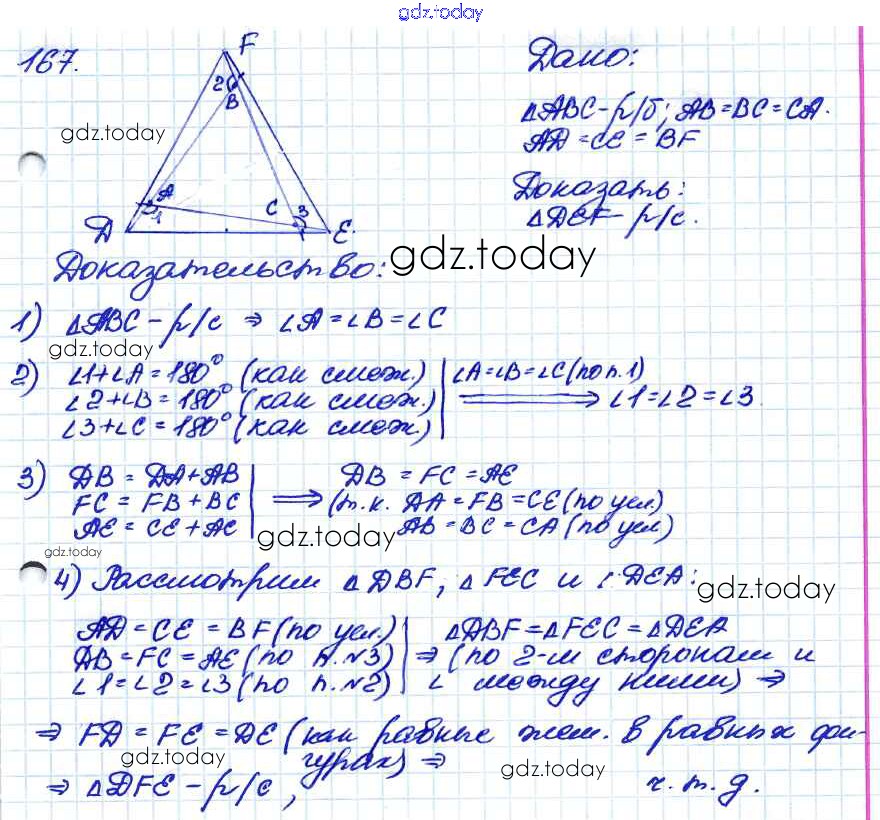 gdz.today
167.
F
2
B
A
1
D
C
3
E.
gdz.today
Дано:
△ABC-р/б; AB=BC=CA.
AD=CE=BF
Доказать:
△DEF-р/с.
Доказательство: gdz.today
1) △ABC-р/с ⇒ ∠A=∠B=∠C
gdz.today
2) ∠1+∠A=180° (как смеж.) | ∠A=∠B=∠C (по п.1)
∠2+∠B=180° (как смеж.) | ⟹ ∠1=∠2=∠3.
∠3+∠C=180° (как смеж.) |
3) DB = DA+AB | DB = FC = AE
FC = FB+BC | ⟹ (т.к. DA=FB=CE (по усл.)
AE = CE+AC | AB=BC=CA (по усл)
gdz.today
gdz.today
4) Рассмотрим △DBF, △FEC и △DEA:
gdz.today
AD=CE=BF (по усл.) | △DBF=△FEC=△DEA
DB=FC=AE (по п.№3) | ⇒ (по 2-м сторонам и
∠1=∠2=∠3 (по п.№2) | ∠ между ними) ⇒
⇒ FD=FE=DE (как равные элем. в равных фи-
gdz.today
гурах) ⇒
gdz.today
⇒ △DFE-р/с, ч.т.д.